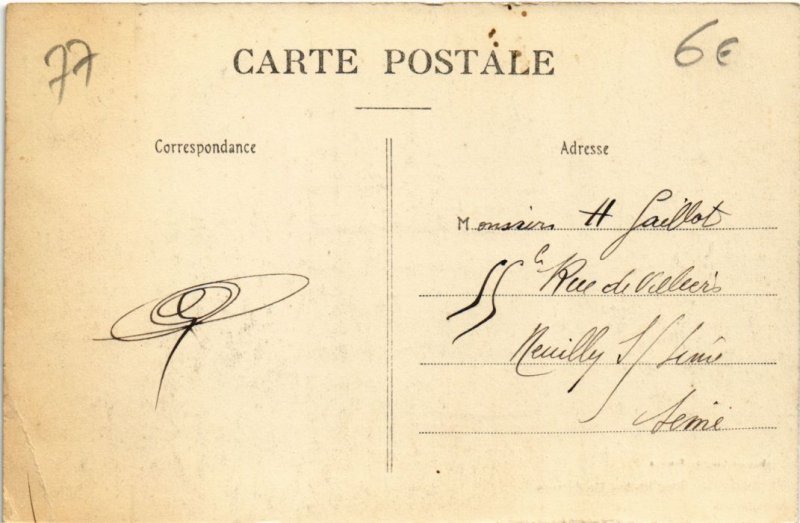 77
6€
CARTE POSTALE
Correspondance
Adresse
Monsieur H Gaillot
55 Rue de Villiers
Neuilly S/ Seine
Seine